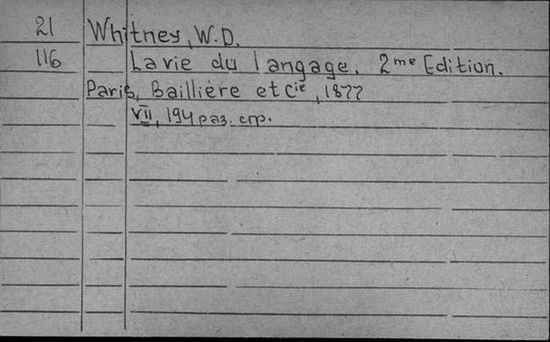 21 Whitney, W.D.
116 La vie du langage. 2me Edition.
Paris, Baillière et Cie, 1877
VII, 194 раз. стр.